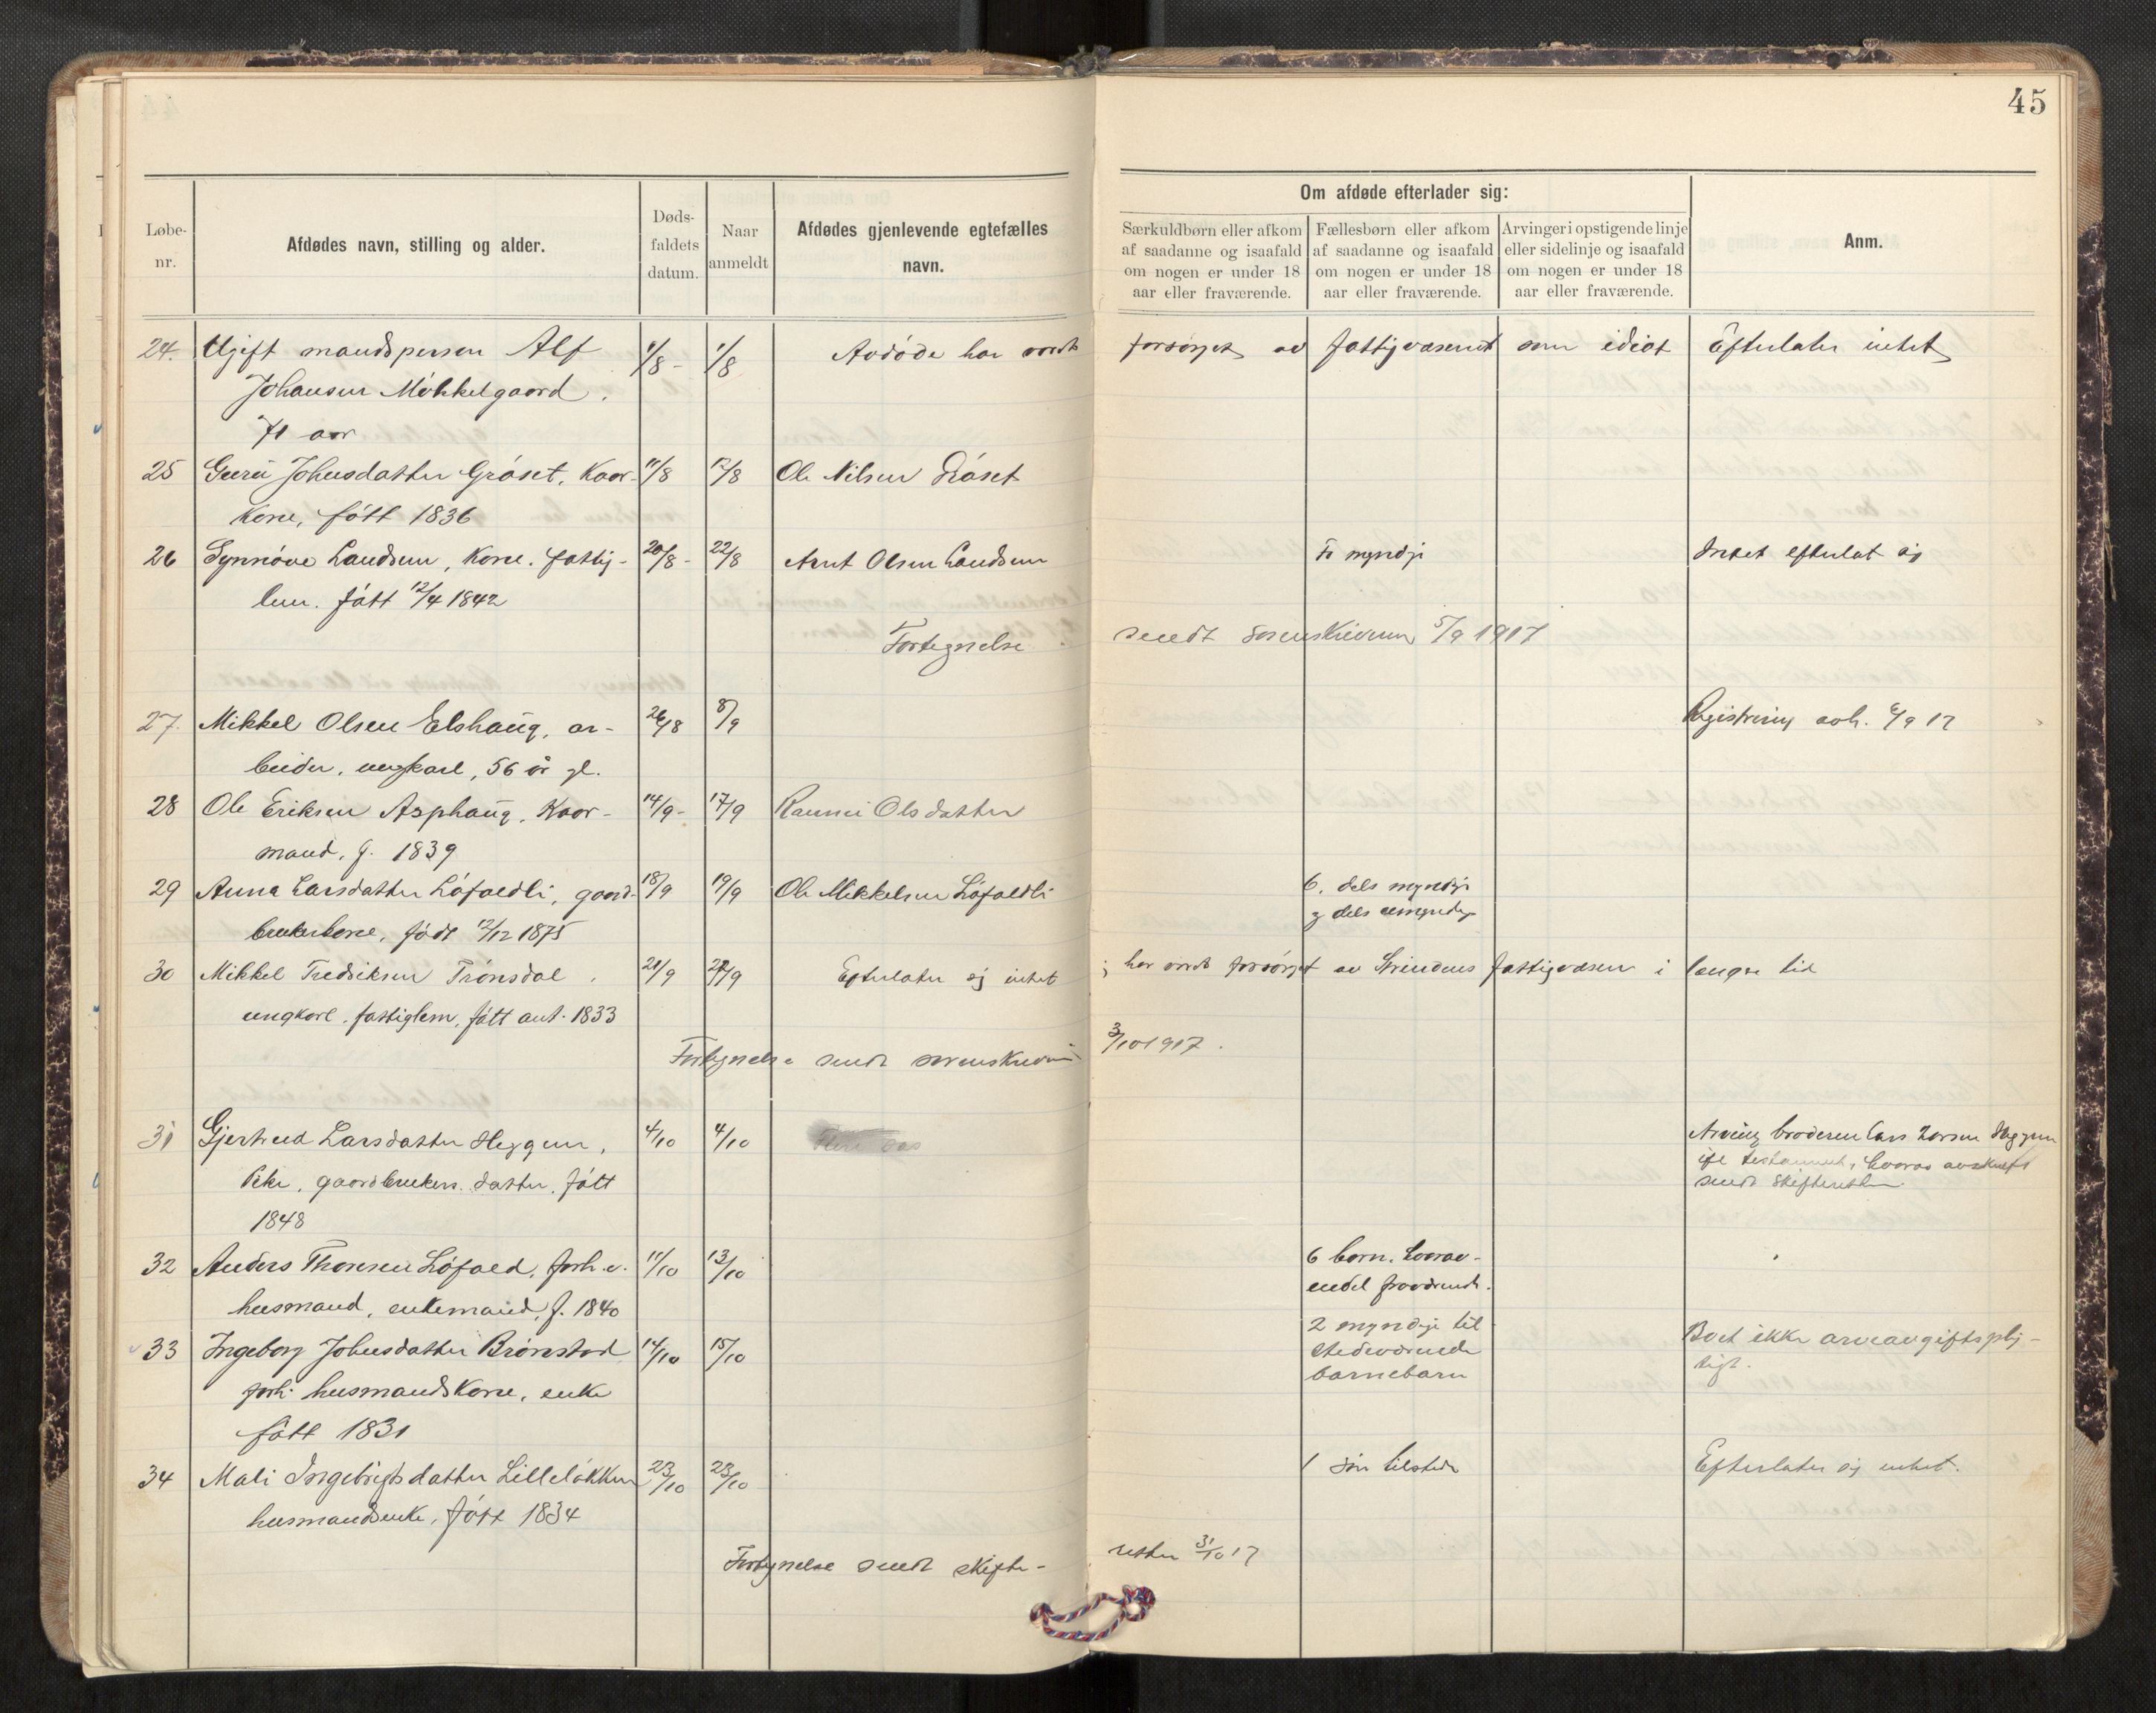 45
Løbe-
nr.
Afdødes navn, stilling og alder.
Døds-
faldets
datum.
Naar
anmeldt
Afdødes gjenlevende egtefælles
navn.
Om afdøde efterlader sig:
Særkuldbørn eller afkom
af saadanne og isaafald
om nogen er under 18
aar eller fraværende.
Fællesbørn eller afkom
af saadanne og isaafald
om nogen er under 18
aar eller fraværende.
Arvinger i opstigende linje
eller sidelinje og isaafald
om nogen er under 18
aar eller fraværende.
Anm.
24. Ugift mandsperson Alf 1/8 - 1/8 Avdøde har vært forsørget av fattigvæsenet som idiot Efterlater intet
Johansen Møkkelgaard.
71 aar
25 Guru Johnsdatter Grøset, Kaar- 11/8 12/8 Ole Nilsen Grøset
kone, født 1836
26 Synnøve Landsem, Kone. fattig- 20/8 - 22/8 Arnt Olsen Landsem To myndige Intet efterlat sig
lem. født 12/4 1842
Fortegnelse sendt sorenskriveren 5/9 1917
27. Mikkel Olsen Elshaug, ar- 26/8 8/9 Registrering avh. 6/9 17
beider, ungkarl, 56 år gl.
28 Ole Eriksen Asphaug, Kaar- 14/9 - 17/9 Rannei Olsdatter
mand, f. 1839
29 Anna Larsdatter Løfaldli, gaard- 18/9 19/9 Ole Mikkelsen Løfaldli 6. dels myndige
brukerkone, født 12/12 1875 og dels umyndige
30 Mikkel Fredriksen Trønsdal, 21/9 Efterlater sig intet; har vært forsørget av Strindens fattigvæsen i længre tid
ungkarl. fattiglem, født ant. 1833
Fortegnelse sendt sorenskriveren 3/10 1917.
31 Gjertrud Larsdatter Heggem, 4/10 4/10 Arving broderen Lars Larsen Heggem
Pike, gaardbrukers datter, født ifl testament, hvorav avskrift
1848 sendt skifteretten
32 Anders Thoresen Løfald, forh.v. 11/10 13/10 6 barn. hvorav-
husmand, enkemand, f. 1840 endel fraværende.
33 Ingeborg Johnsdatter Brønstad 14/10 15/10 2 myndige til Boet ikke arveavgiftsplig-
forh. husmandskone, enke stedeværende tigt.
født 1831 barnebarn
34 Mali Ingebrigtsdatter Lilleløkken 23/10 23/10 1 søn tilstede Efterlater sig intet.
husmandsenke, født 1834
Fortegnelse sendt skifte- retten 31/10 17